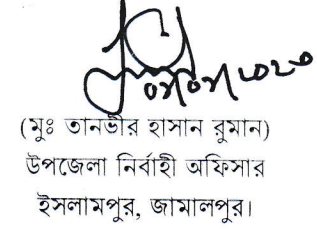 (মুঃ তানভীর হাসান রুমান)
উপজেলা নির্বাহী অফিসার
ইসলামপুর, জামালপুর।